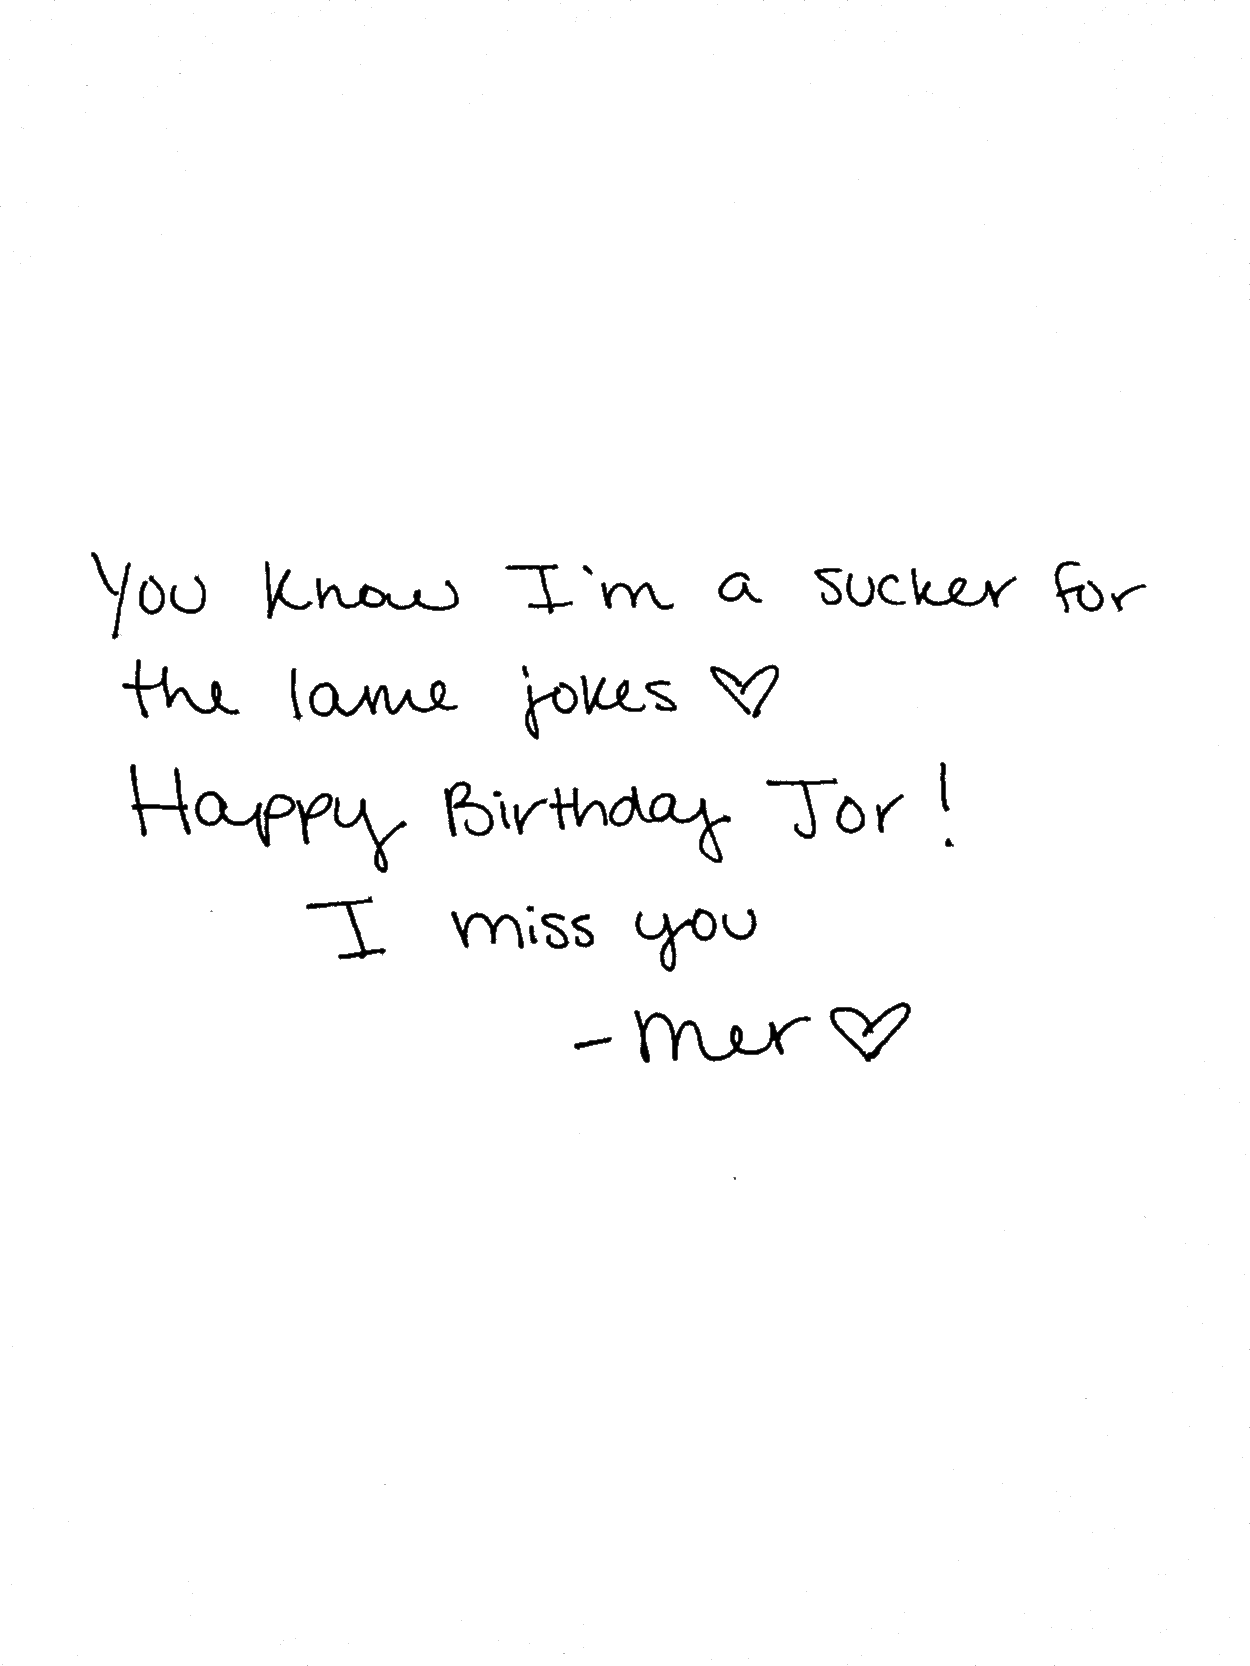 You know I'm a sucker for
the lame jokes ♡
Happy Birthday Jor!
I miss you
-Mer ♡